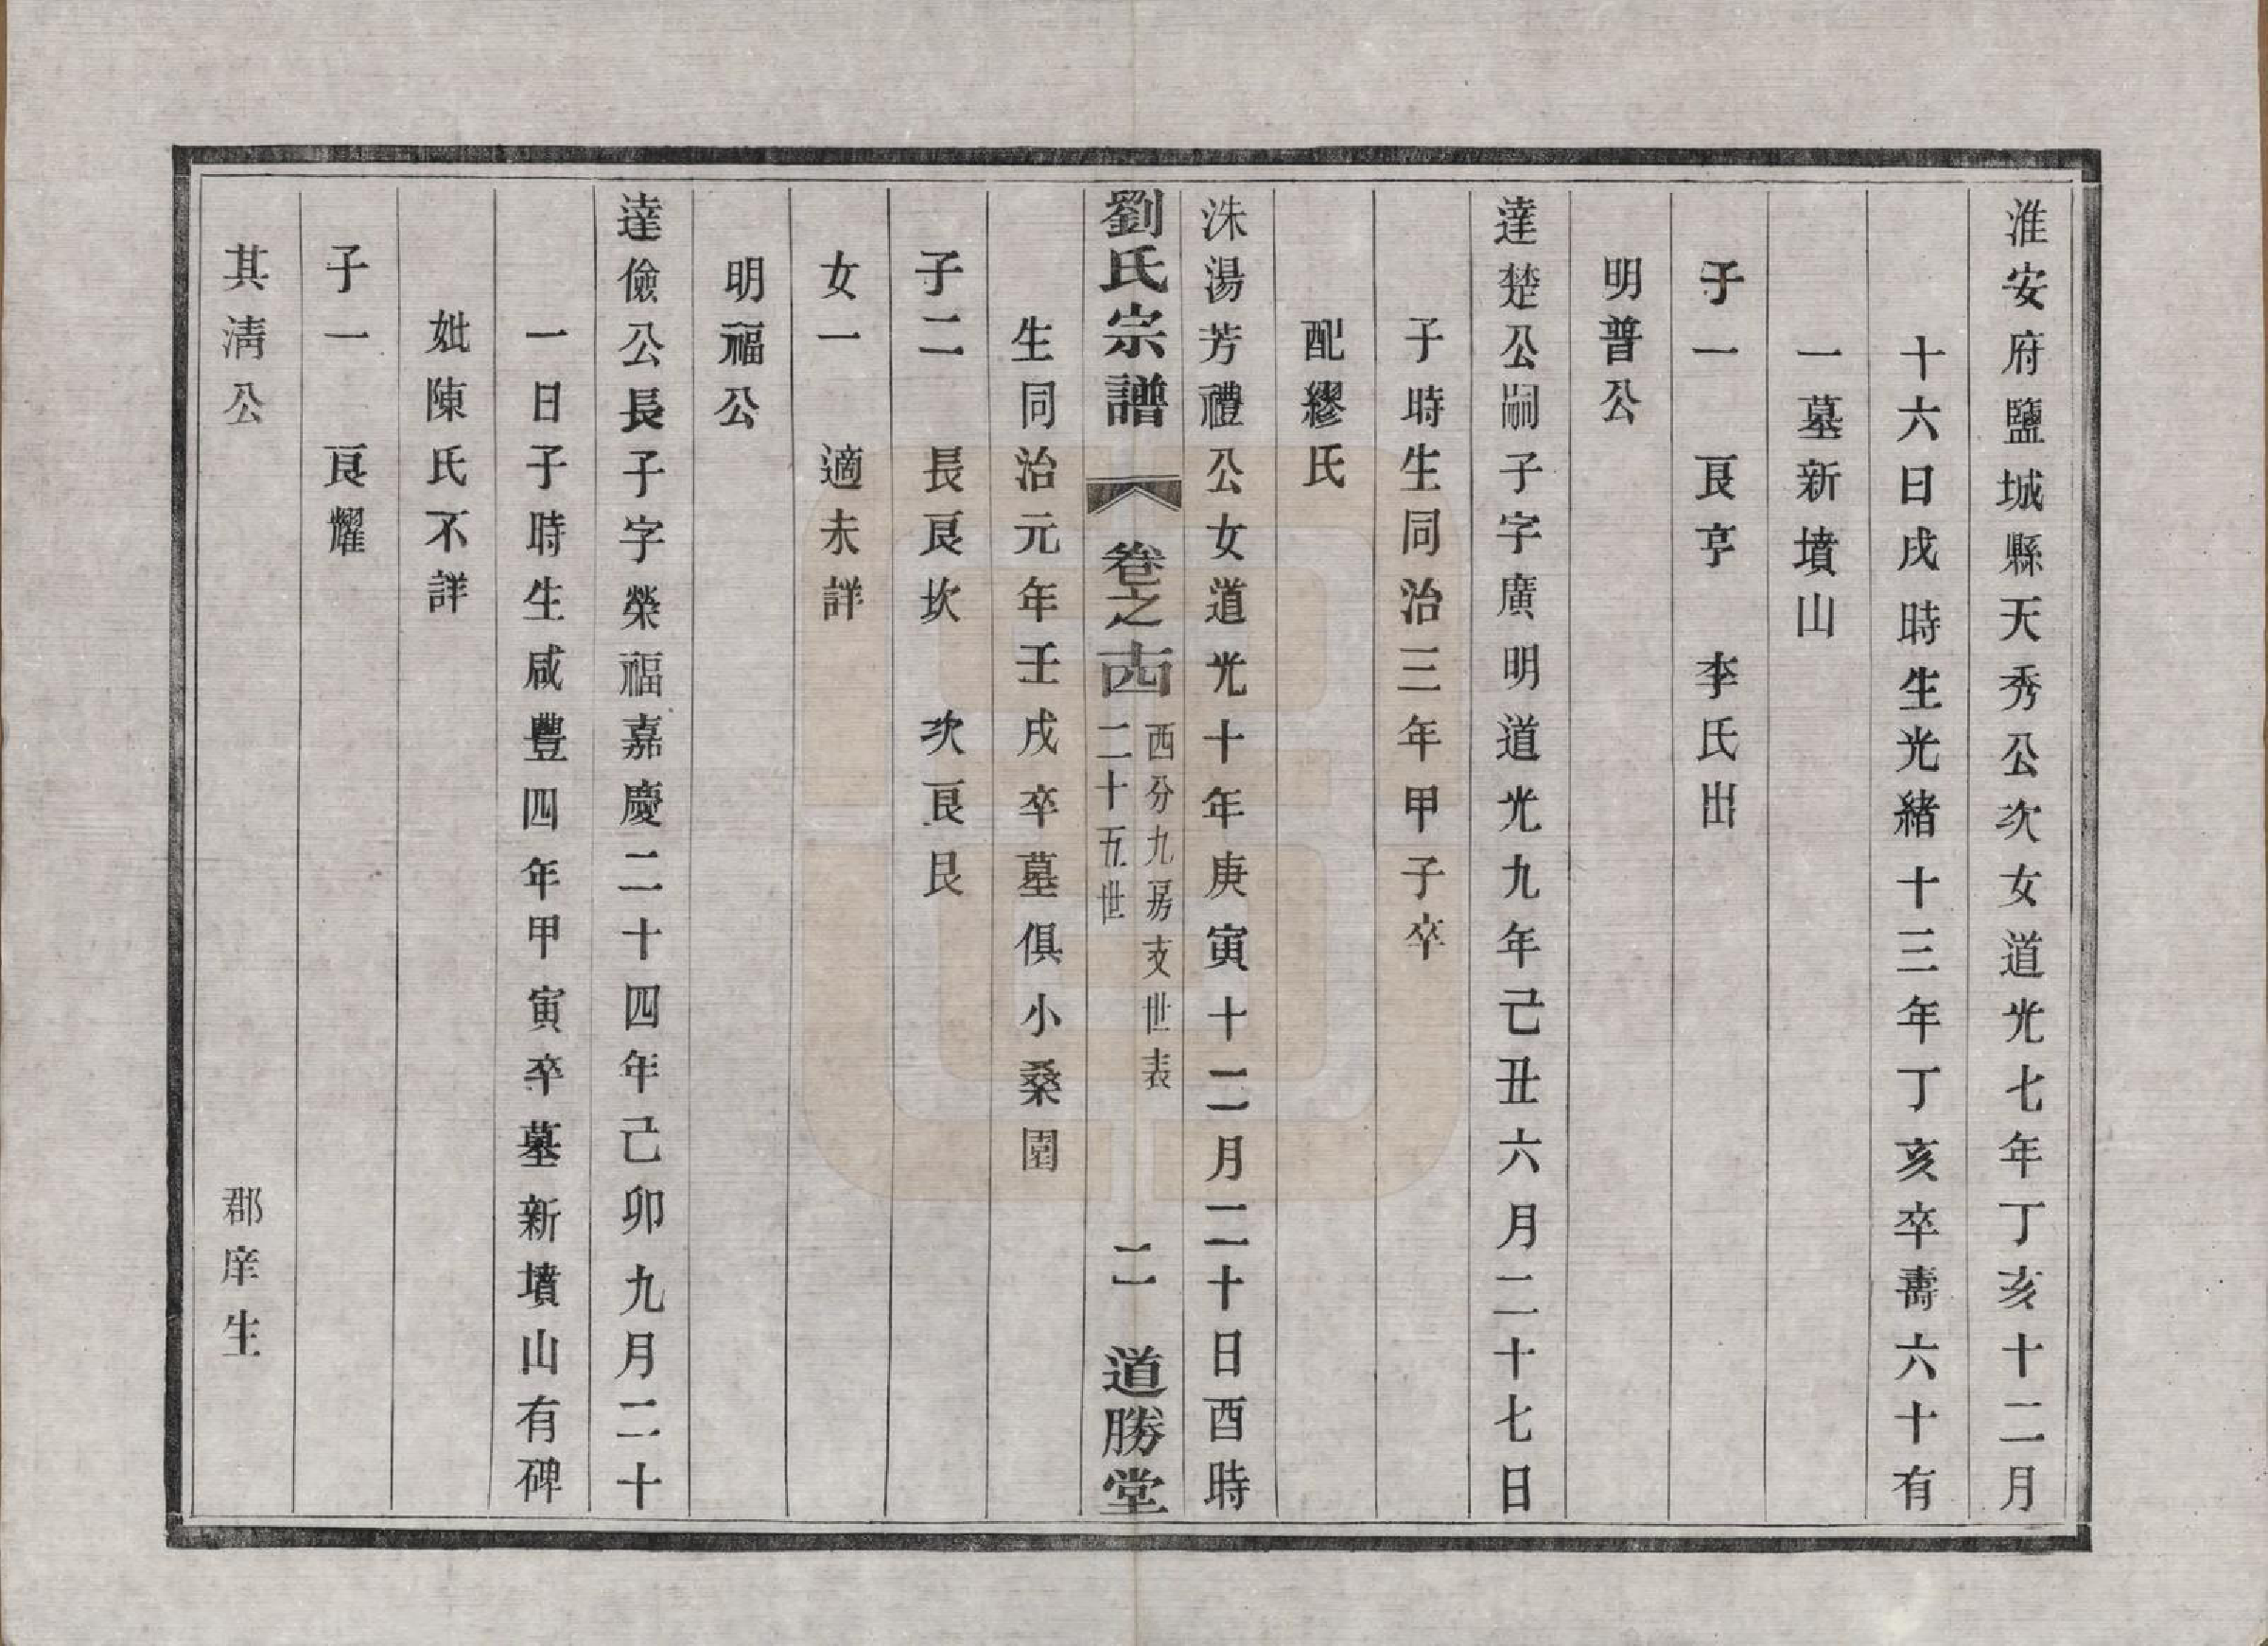 淮安府鹽城縣天秀公次女道光七年丁亥十二月
十六日戌時生光緒十三年丁亥卒壽六十有
一墓新墳山
子一　良亨　李氏出
明普公
達楚公嗣子字廣明道光九年己丑六月二十七日
子時生同治三年甲子卒
配繆氏
洙湯芳禮公女道光十年庚寅十二月二十日酉時
劉氏宗譜　卷之西　西分九房支世表　二十五世　二　道勝堂
生同治元年壬戌卒墓俱小桑園
子二　長良坎　次良艮
女一　適未詳
明福公
達儉公長子字榮福嘉慶二十四年己卯九月二十
一日子時生咸豐四年甲寅卒墓新墳山有碑
妣陳氏不詳
子一　良耀
其清公　郡庠生